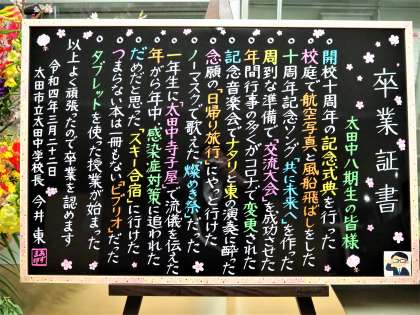 卒業証書
太田中八期生の皆様
開校十周年の記念式典を行った
校庭で航空写真と風船飛ばしをした
十周年記念ソング「共に未来へ」を作った
周到な準備で「交流大会」を成功させた
年間行事の多くがコロナで変更された
記念音楽会でナタリと東の演奏に酔った
念願の「日帰り旅行」にやっと行けた
ノーマスクで歌えた「燦めき祭」だった
一年生に「太田中寺子屋」で流儀を伝えた
年がら年中、感染症対策に追われた
だめだと思った「スキー合宿」に行けた
つまらない本は一冊もない「ビブリオ」だった
タブレットを使った授業が始まった
以上よく頑張ったので卒業を認めます
令和四年三月二十二日
太田市立太田中学校長 今井 東